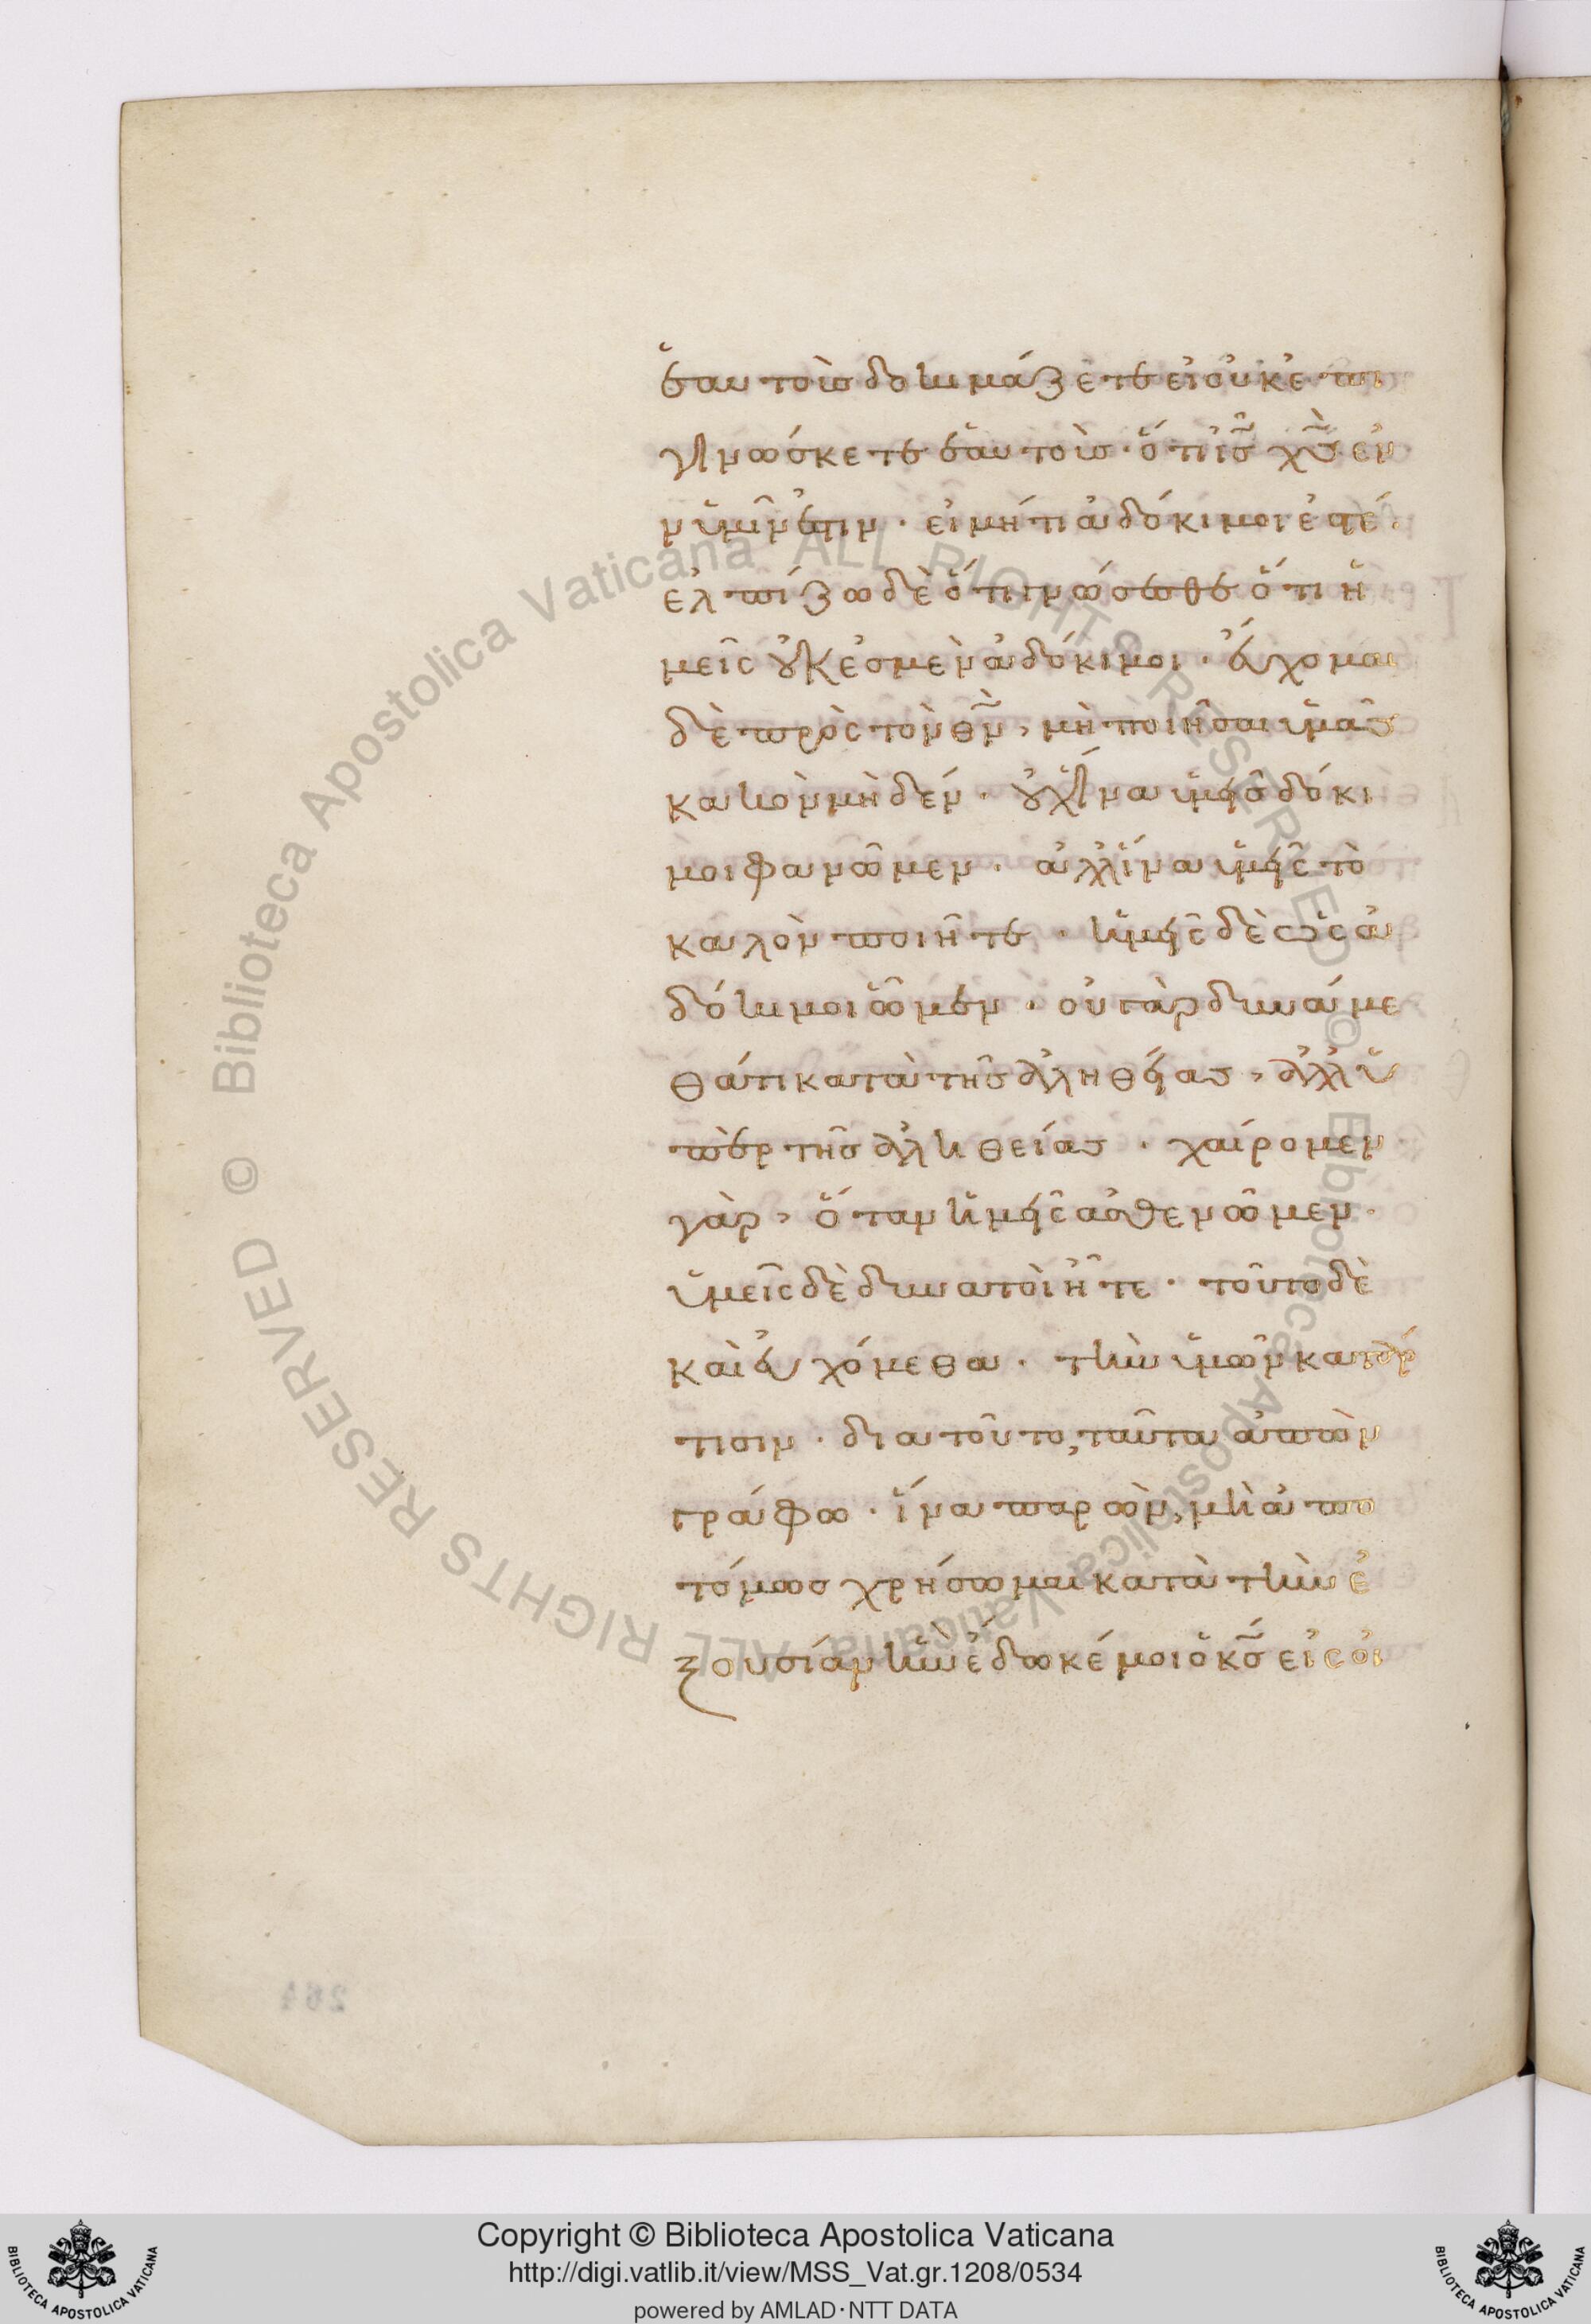 ἑαυτοὺς δοκιμάζετε· εἰ οὐκ ἐπι
γινώσκετε ἑαυτοὺς· ὅτι ις χς ἐν
ν ὑμῖν ἐστιν· εἰ μή τι ἀδόκιμοι ἐστέ·
ἐλπίζω δὲ ὅτι γνώσεσθε ὅτι ἡ
μεῖς οὐκ ἐσμὲν ἀδόκιμοι· εὔχομαι
δὲ πρὸς τὸν θν, μὴ ποιῆσαι ὑμᾶς
κακὸν μηδέν· οὐχ ἵνα ἡμεῖς δόκι
μοι φανῶμεν· ἀλλ' ἵνα ὑμεῖς τὸ
καλὸν ποιῆτε· ἡμεῖς δὲ ὡς ἀ
δόκιμοι ὦμεν· οὐ γὰρ δυνάμε
θά τι κατὰ τῆς ἀληθείας, ἀλλ' ὑ
πὲρ τῆς ἀληθείας· χαίρομεν
γὰρ, ὅταν ἡμεῖς ἀσθενῶμεν·
ὑμεῖς δὲ δυνατοὶ ἦτε· τοῦτο δὲ
καὶ εὐχόμεθα· τὴν ὑμῶν κατάρ
τισιν· διατοῦτο, ταῦτα ἀπὼν
γράφω· ἵνα παρὼν, μὴ ἀπο
τόμως χρήσωμαι κατὰ τὴν ἐ
ξουσίαν ἣν ἔδωκέ μοι ὁ κς εἰς οἰ
264
Copyright © Biblioteca Apostolica Vaticana
http://digi.vatlib.it/view/MSS_Vat.gr.1208/0534
powered by AMLAD·NTT DATA
BIBLIOTECA APOSTOLICA VATICANA
BIBLIOTECA APOSTOLICA VATICANA
© Biblioteca Apostolica Vaticana ALL RIGHTS RESERVED © Biblioteca Apostolica Vaticana ALL RIGHTS RESERVED